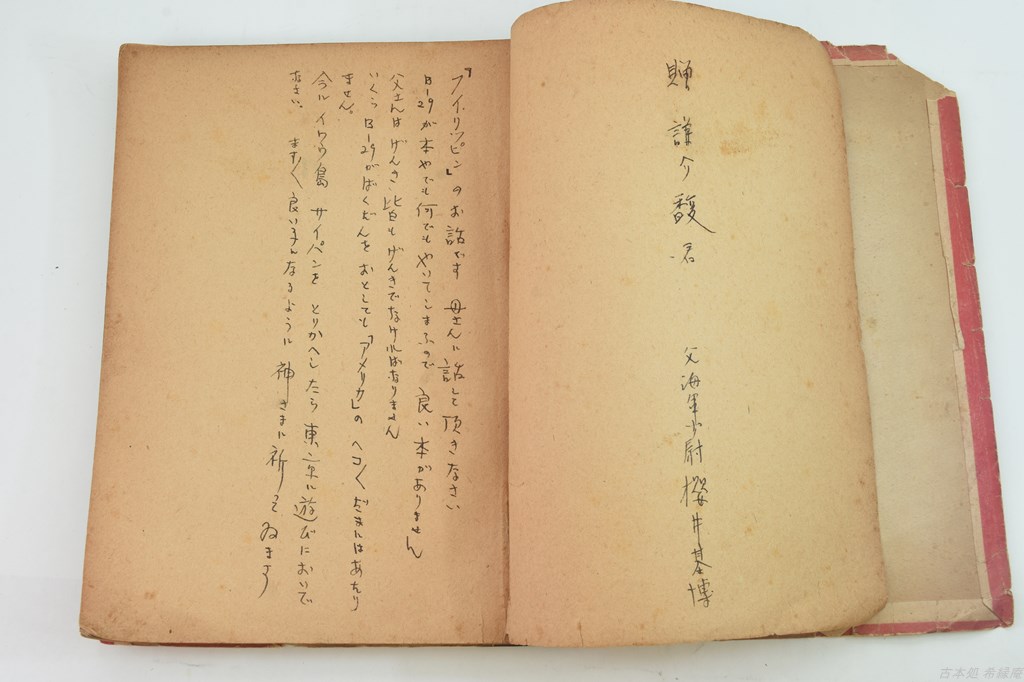 贈 謹介 馥 君
父 海軍少尉 櫻井基博
『フイリッピン』のお話です 母さんに話して頂きなさい
B-29が本やでも何でもやいてしまふので 良い本がありません
父さんは げんき 皆もげんきでなければなりません
いくらB-29がばくだんをおとしても『アメリカ』のヘコ〱だまにはあたり
ません。
今に イワウ島 サイパンを とりかへしたら 東京に遊びにおいで
なさい。 ます〱良い子になるように 神さまに祈つてゐます
古本処 希縁庵